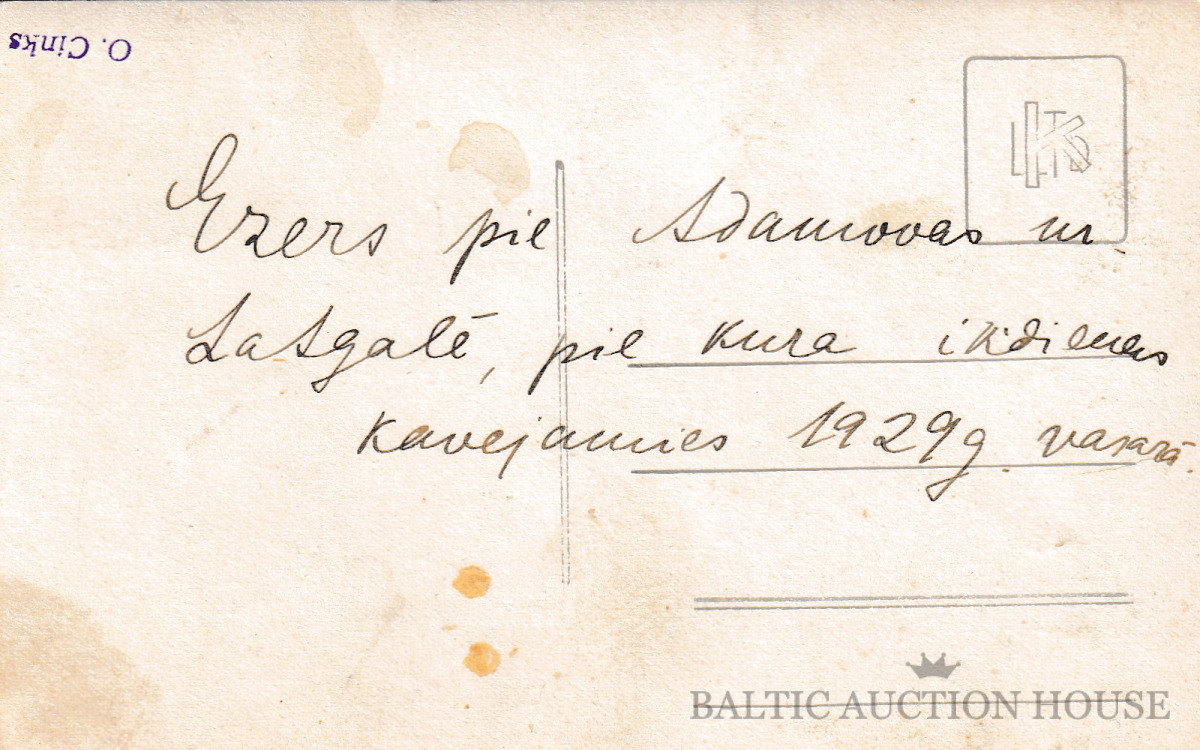 O. Cinks
Ezers pie Adamovas m.
Latgalē, pie kura ikdienas
kavejamies 1929g. vasarā.
BALTIC AUCTION HOUSE